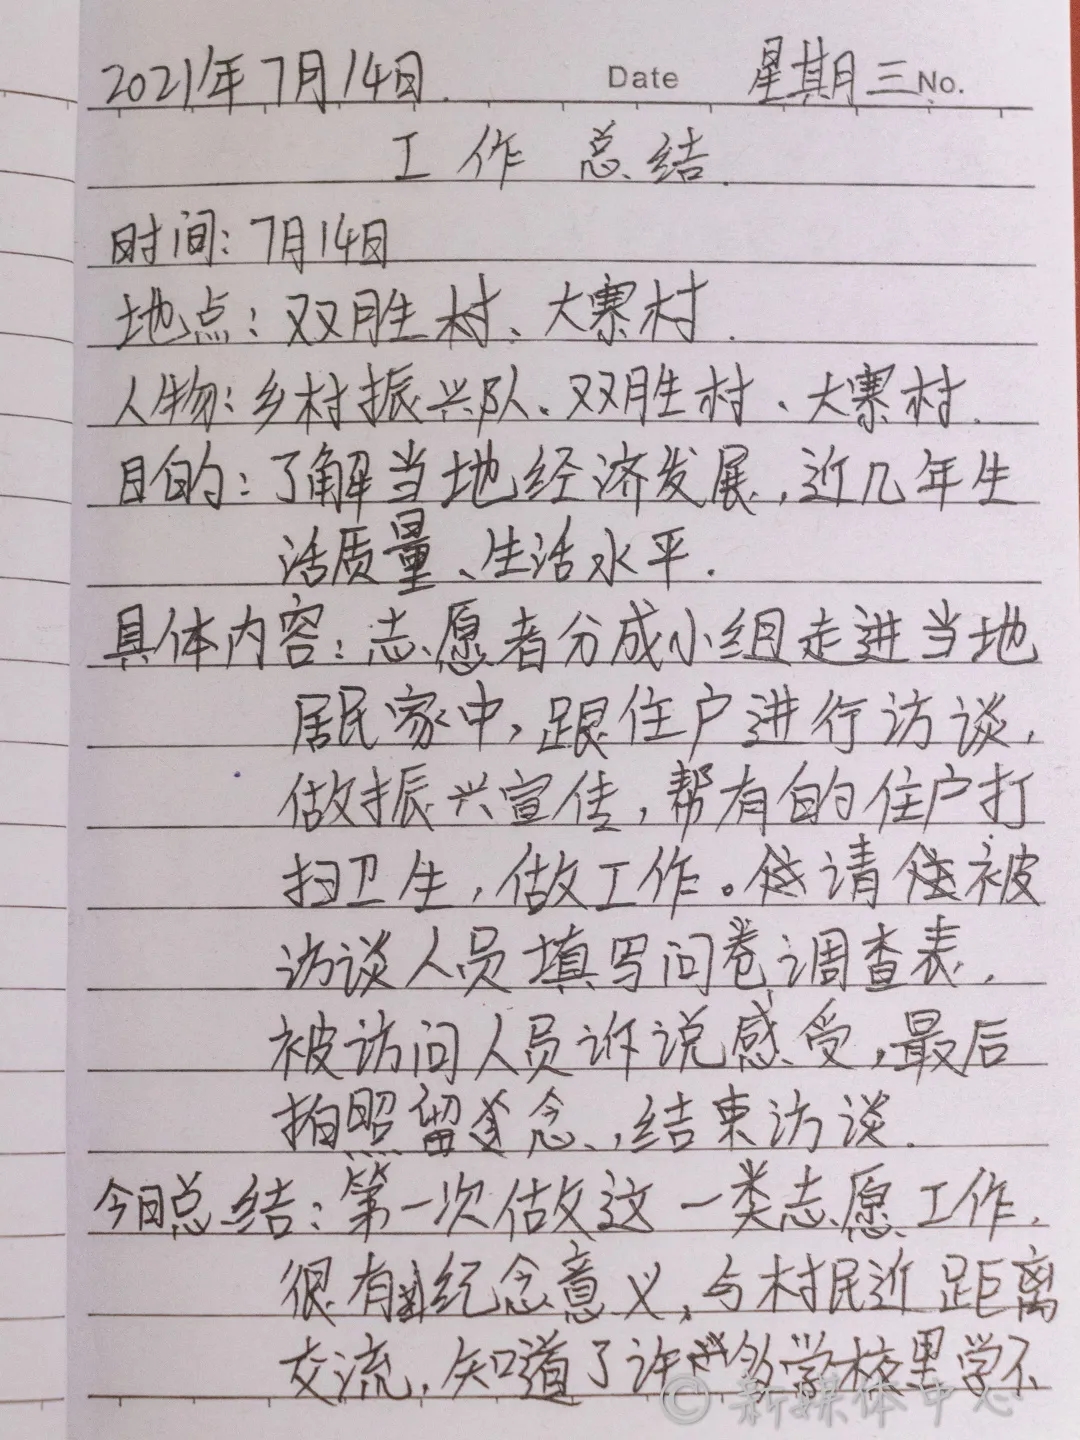 2021年7月14日. Date 星期三 No.
工作总结.
时间：7月14日
地点：双胜村、大寨村.
人物：乡村振兴队、双胜村、大寨村.
目的：了解当地经济发展，近几年生
活质量、生活水平.
具体内容：志愿者分成小组走进当地
居民家中，跟住户进行访谈，
做振兴宣传，帮有的住户打
扫卫生，做工作。请被
访谈人员填写问卷调查表，
被访问人员诉说感受，最后
拍照留念，结束访谈.
今日总结：第一次做这一类志愿工作，
很有纪念意义，与村民近距离
交流，知道了许多学校里学不
© 新媒体中心